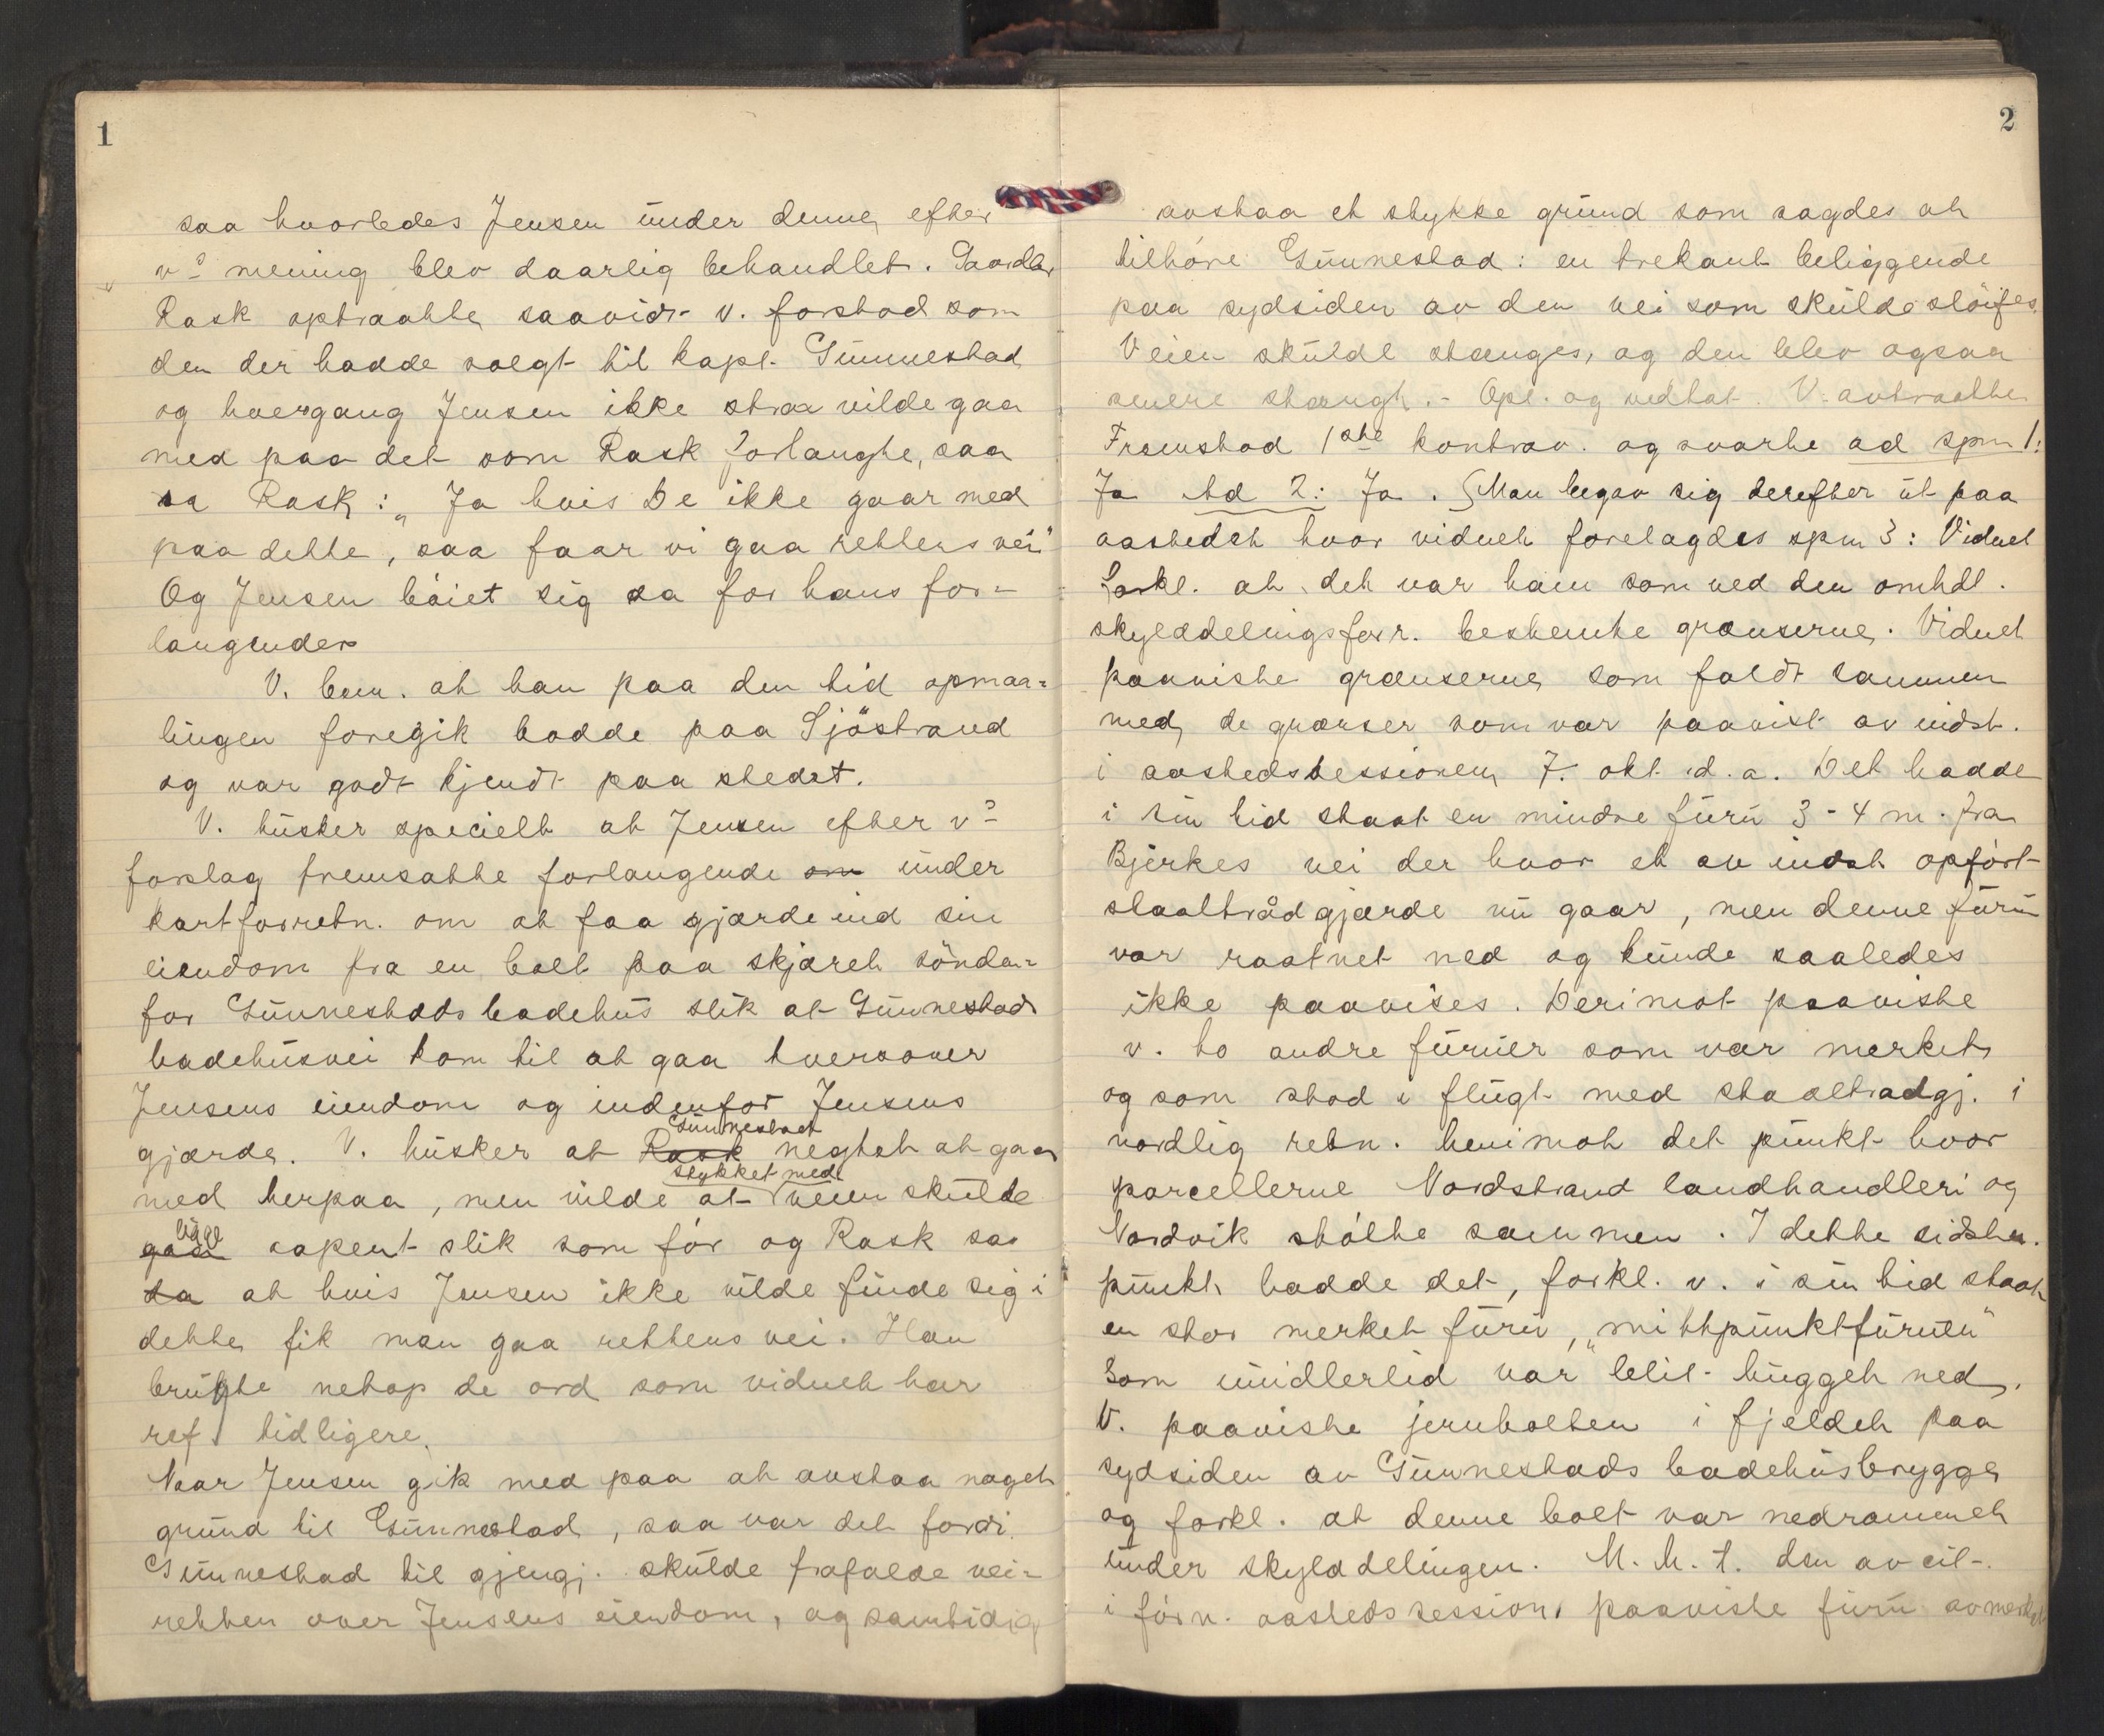 1
saa hvorledes Jensen under denne efter
vs mening blev daarlig behandlet.
Rask optraatte saavidt v. forstod som
den der hadde solgt til kapt. Gunnestad
og hvergang Jensen ikke strax vilde gaa
med paa det som Rask forlangte, saa
sa Rask: "Ja hvis De ikke gaar med
paa dette, saa faar vi gaa rettens vei"
Og Jensen bøiet sig da for hans for-
langender
V. bem. at han paa den tid opmaa-
lingen foregik bodde paa Sjøstrand
og var godt kjendt paa stedet.
V. husker specielt at Jensen efter vs
forslag fremsatte forlangende om under
kartforretn. om at faa gjærde ind sin
eiendom fra en bolt paa skjæret sønden-
for Gunnestads badehus slik at Gunnestads
badehusvei kom til at gaa tversover
Jensens eiendom og indenfor Jensens
Gunnestad
gjærde. V. husker at Rask negtet at gaa
stykket med
med herpaa, men vilde at veien skulde
ligge
gaa aapent slik som før og Rask sa
da at hvis Jensen ikke vilde finde sig i
dette fik man gaa rettens vei. Han
brukte netop de ord som vidnet har
ref. tidligere.
Naar Jensen gik med paa at avstaa noget
grund til Gunnestad, saa var det fordi
Gunnestad til gjengj. skulde frafalde vei-
retten over Jensens eiendom, og samtidig
2
avstaa et stykke grund som sagdes at
tilhøre Gunnestad: en trekant beliggende
paa sydsiden av den vei som skulde sløifes.
Veien skulde stænges, og den blev ogsaa
senere stængt.- Opl. og vedtat. V. avtraatte
Fremstod 1ste kontrav. og svarte ad spm 1:
Ja Ad 2: Ja. Man begav sig derefter ut paa
aastedet hvor vidnet forelagdes spm 3: Vidnet
forkl. at det var ham som ved den omhdl.
skylddelingsforr. bestemte grænserne. Vidnet
paaviste grænserne som faldt sammen
med de grænser som var paavist av indst.
i aastedssessionen 7. okt. d.a. Det hadde
i sin tid staat en mindre furu 3-4 m. fra
Bjerkes vei der hvor et av indst opført
staaltråd gjærde nu gaar, men denne furu
var raatnet ned og kunde saaledes
ikke paavises. Derimot paaviste
v. to andre furuer som var merket
og som stod i flugt med staaltradgj. i
nordlig retn. henimot det punkt hvor
parcellerne Nordstrand landhandleri og
Nordvik støtte sammen. I dette sidste
punkt hadde det, forkl. v. i sin tid staat
en stor merket furu, "midtpunktfuruen"
som imidlertid var blit hugget ned.
V. paaviste jernbolten i fjeldet paa
sydsiden av Gunnestads badehusbrygge
og forkl. at denne bolt var nedrammet
under skylddelingen. M. h. t. den av cit.
i forn. aastedssession paaviste furu avmerket